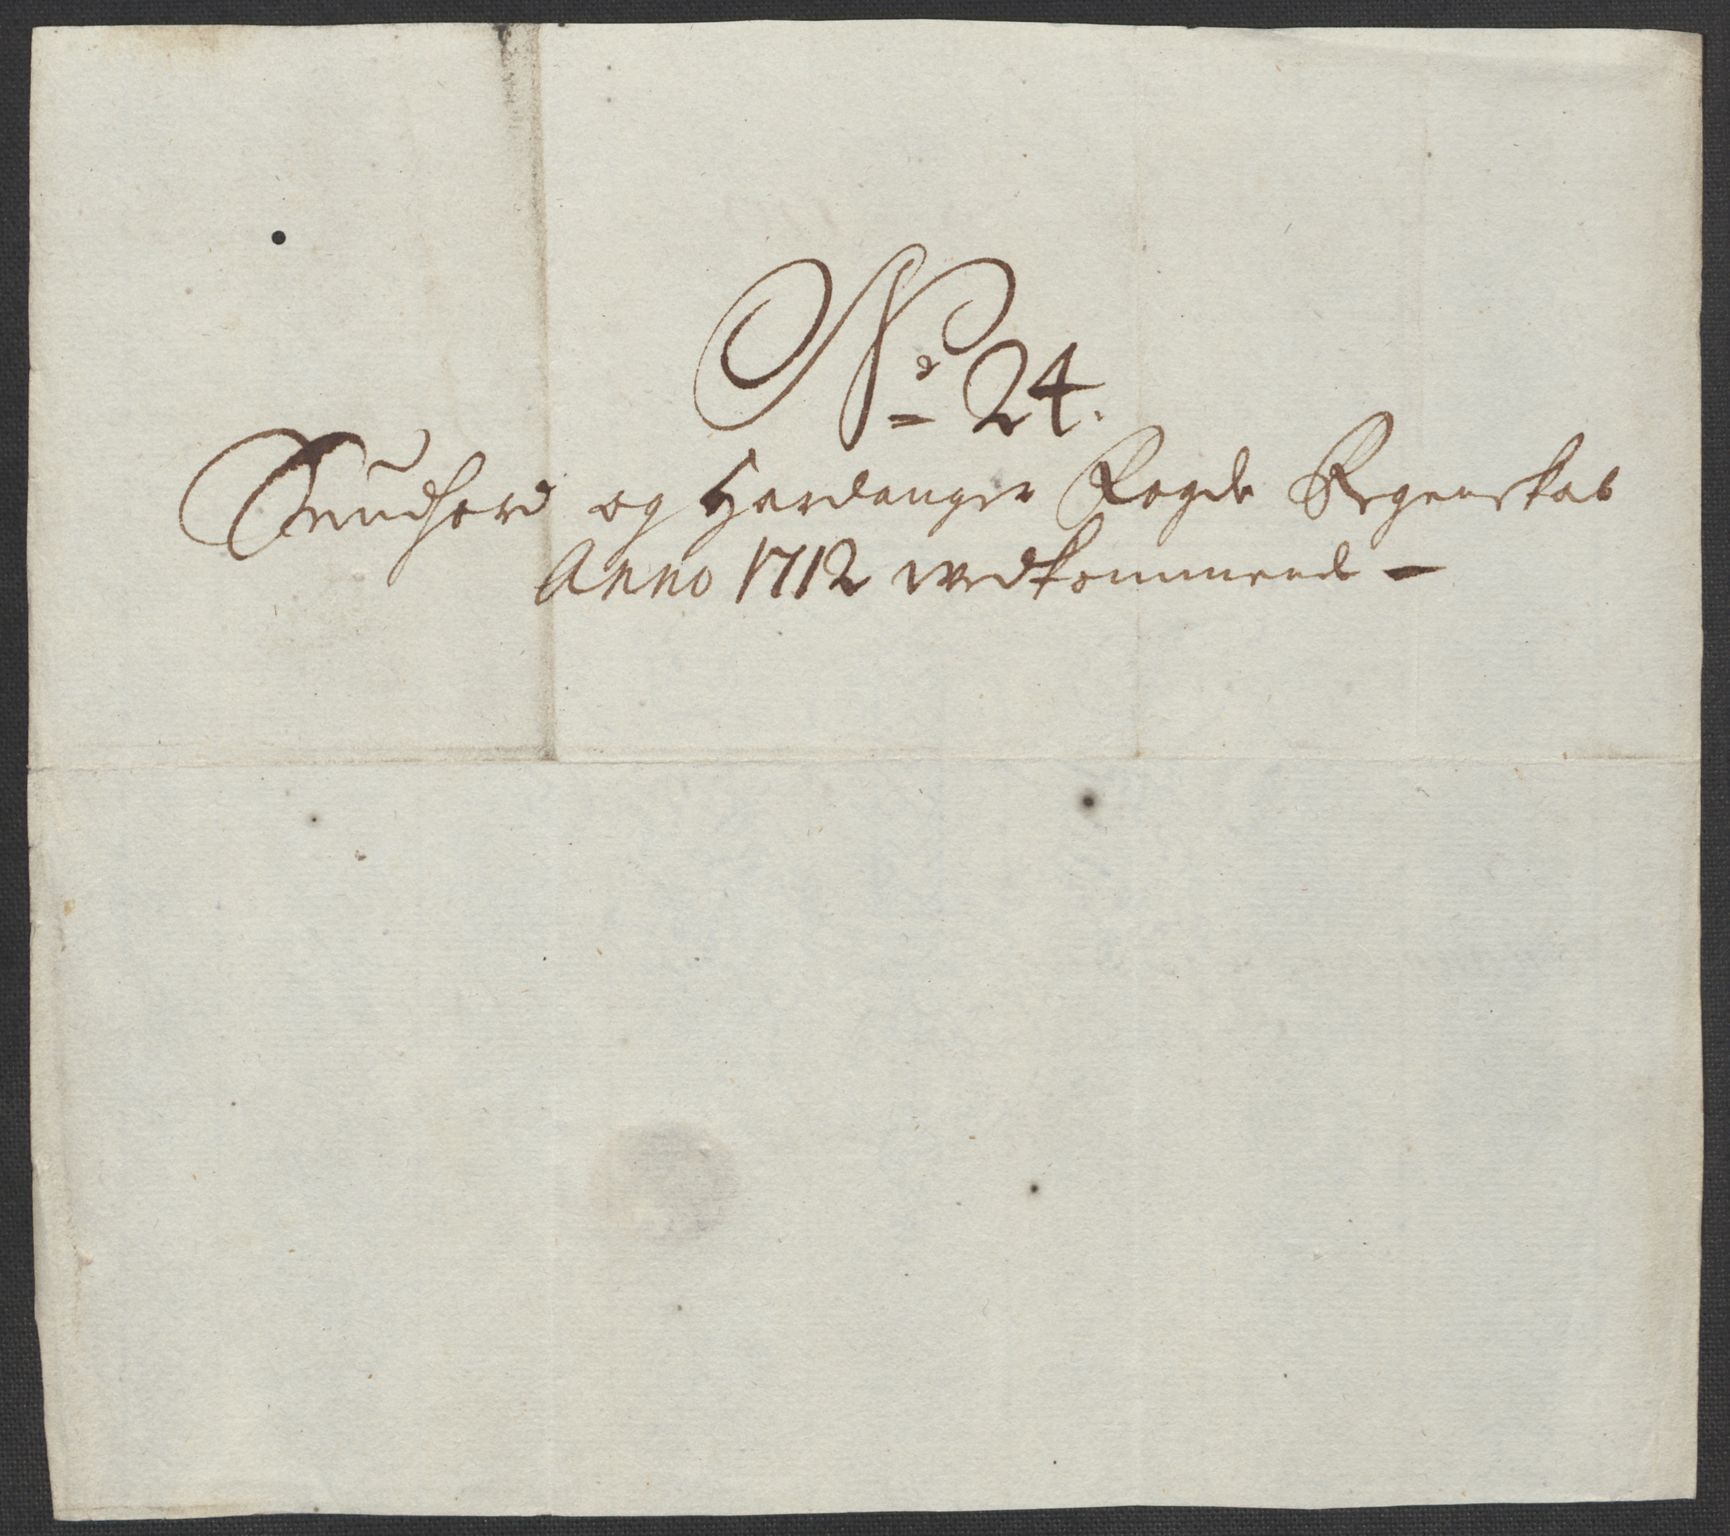 No 24.
Sundhord og Hardanger Fogde Regenskab
Anno 1712 wedkommende —